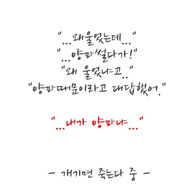 "...왜울었는데..."
"...양파썰다가!"
"왜 울었냐고.."
"양파때문이라고 대답했어."
"...내가 양파냐..."
- 개기면 죽는다 중 -